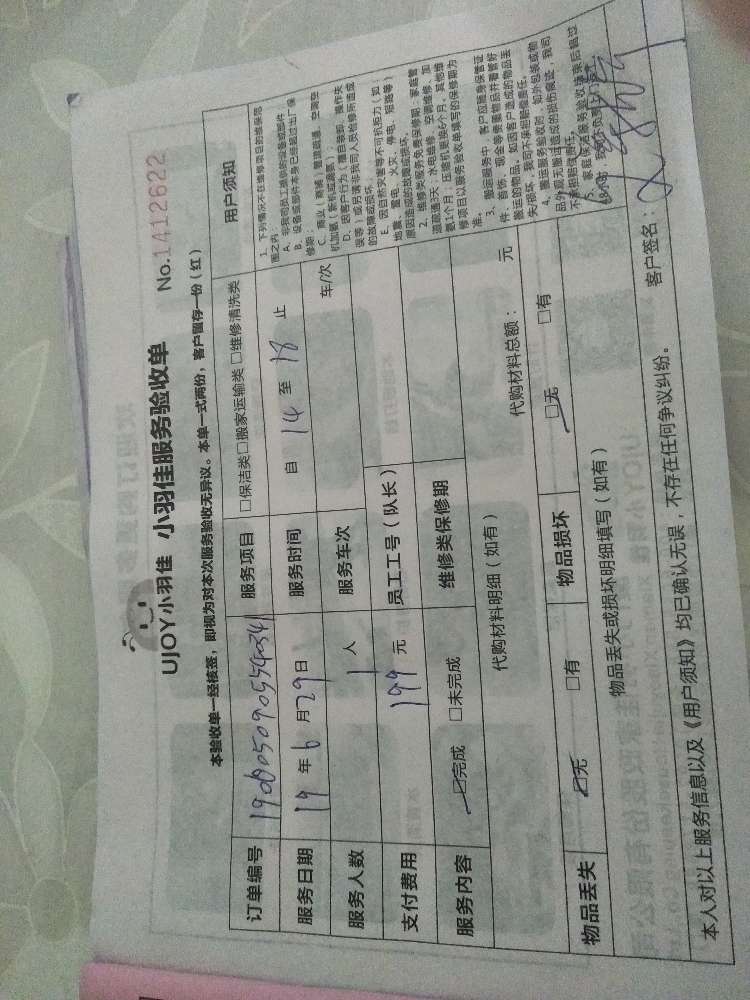 UJOY小羽佳 小羽佳服务验收单 No.1412622
本验收单一经核签，即视为对本次服务验收无异议。本单一式两份，客户留存一份（红）
订单编号 服务项目 □保洁类□搬家运输类 □维修清洗类
服务日期 19 年 6 月 29 日 服务时间 自 14 至 18 止
服务人数 1 人 服务车次 车/次
支付费用 199 元 员工工号（队长）
服务内容 ☑完成 □未完成 维修类保修期
代购材料明细（如有） 代购材料总额： 元
物品丢失 ☑无 □有 物品损坏 ☑无 □有
物品丢失或损坏明细填写（如有）
用户须知
1、下列情况不在维修项目的维保范
围之内：
A、非我司员工提供的设备或部件
B、设备或部件本身已经超过出厂保
修期；
D、因客户行为（擅自装卸、操作失
误等）或另请非我司人员检修所造成
的故障或损坏
E、因自然灾害等不可抗拒力（如
地震、雷电、火灾、停电、短路等）
原因造成的故障或损坏。
2、维修类服务免费保修期：家庭管
道疏通3天，水电维修、空调维修、加
氨1个月，压缩机更换6个月，其他维
修项目以服务验收单填写的保修期为
准。
3、搬运服务中，客户应随身保管证
件、首饰、现金等贵重物品并看管好
搬运的物品。如因客户造成的物品丢
失/损坏，我司不承担赔偿责任。
4、搬运服务验收的，如外包装或物
品外观无搬运造成的损伤痕迹，我司
不承担赔偿责任。
本人对以上服务信息以及《用户须知》均已确认无误，不存在任何争议纠纷。 客户签名：